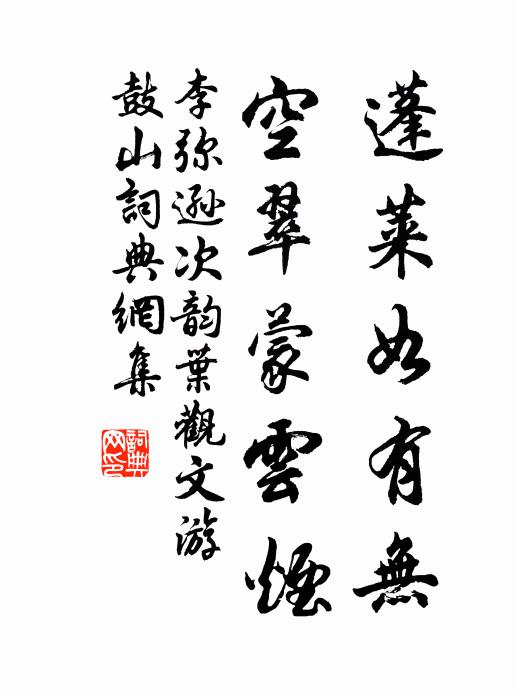 蓬萊如有無
空翠蒙雲煙
李弥遜次韵葉觀文游
鼓山詞典網集
詞典
网印